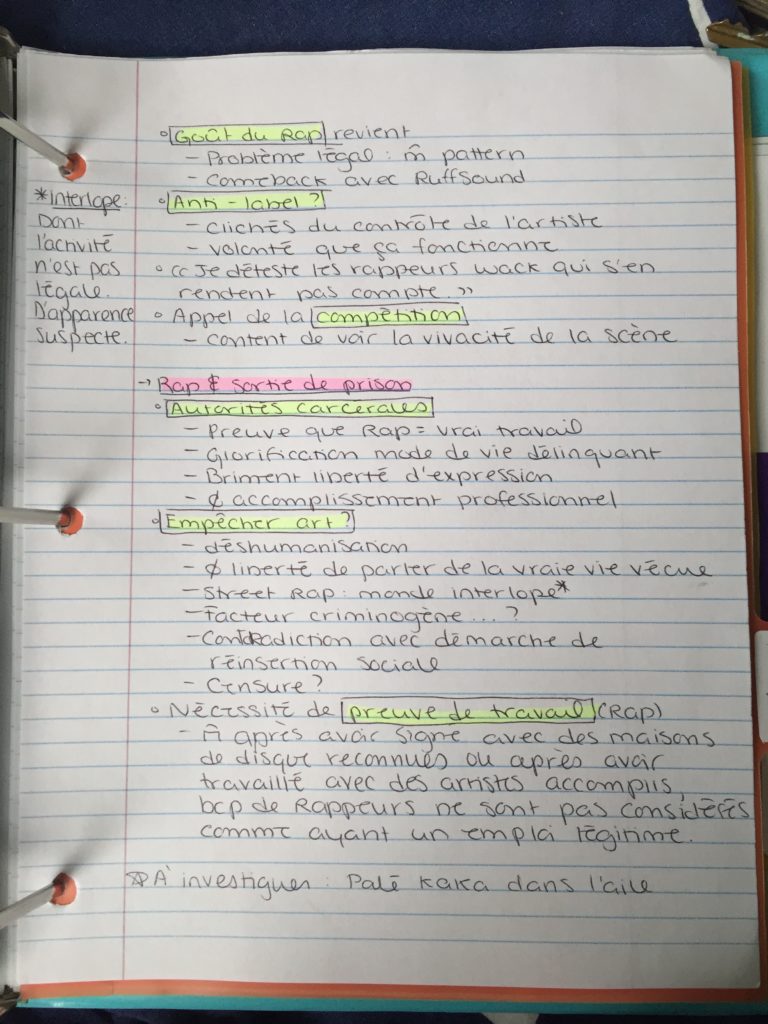 ° Goût du Rap revient
- Problème légal : m̂ pattern
- Comeback avec Ruffsound
° Anti-label ?
- clichés du contrôle de l'artiste
- volonté que ça fonctionne
° « Je déteste les rappeurs wack qui s'en
rendent pas compte. »
° Appel de la compétition
- content de voir la vivacité de la scène
*Interlope:
Dont
l'activité
n'est pas
légale.
D'apparence
suspecte.
→ Rap & sortie de prison
° Autorités carcérales
- Preuve que Rap = vrai travail
- Glorification mode de vie délinquant
- Briment liberté d'expression
- ∅ accomplissement professionnel
° Empêcher art ?
- déshumanisation
- ∅ liberté de parler de la vraie vie vécue
- Street Rap : monde interlope*
- Facteur criminogène... ?
- Contradiction avec démarche de
réinsertion sociale
- Censure ?
° Nécessité de preuve de travail (Rap)
- M̂ après avoir signé avec des maisons
de disque reconnues ou après avoir
travaillé avec des artistes accomplis,
bcp de Rappeurs ne sont pas considérés
comme ayant un emploi légitime.
☆ À investiguer : Palé kaka dans l'aile